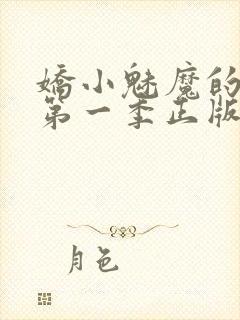 嬌小魅魔的
第一季正版
月色